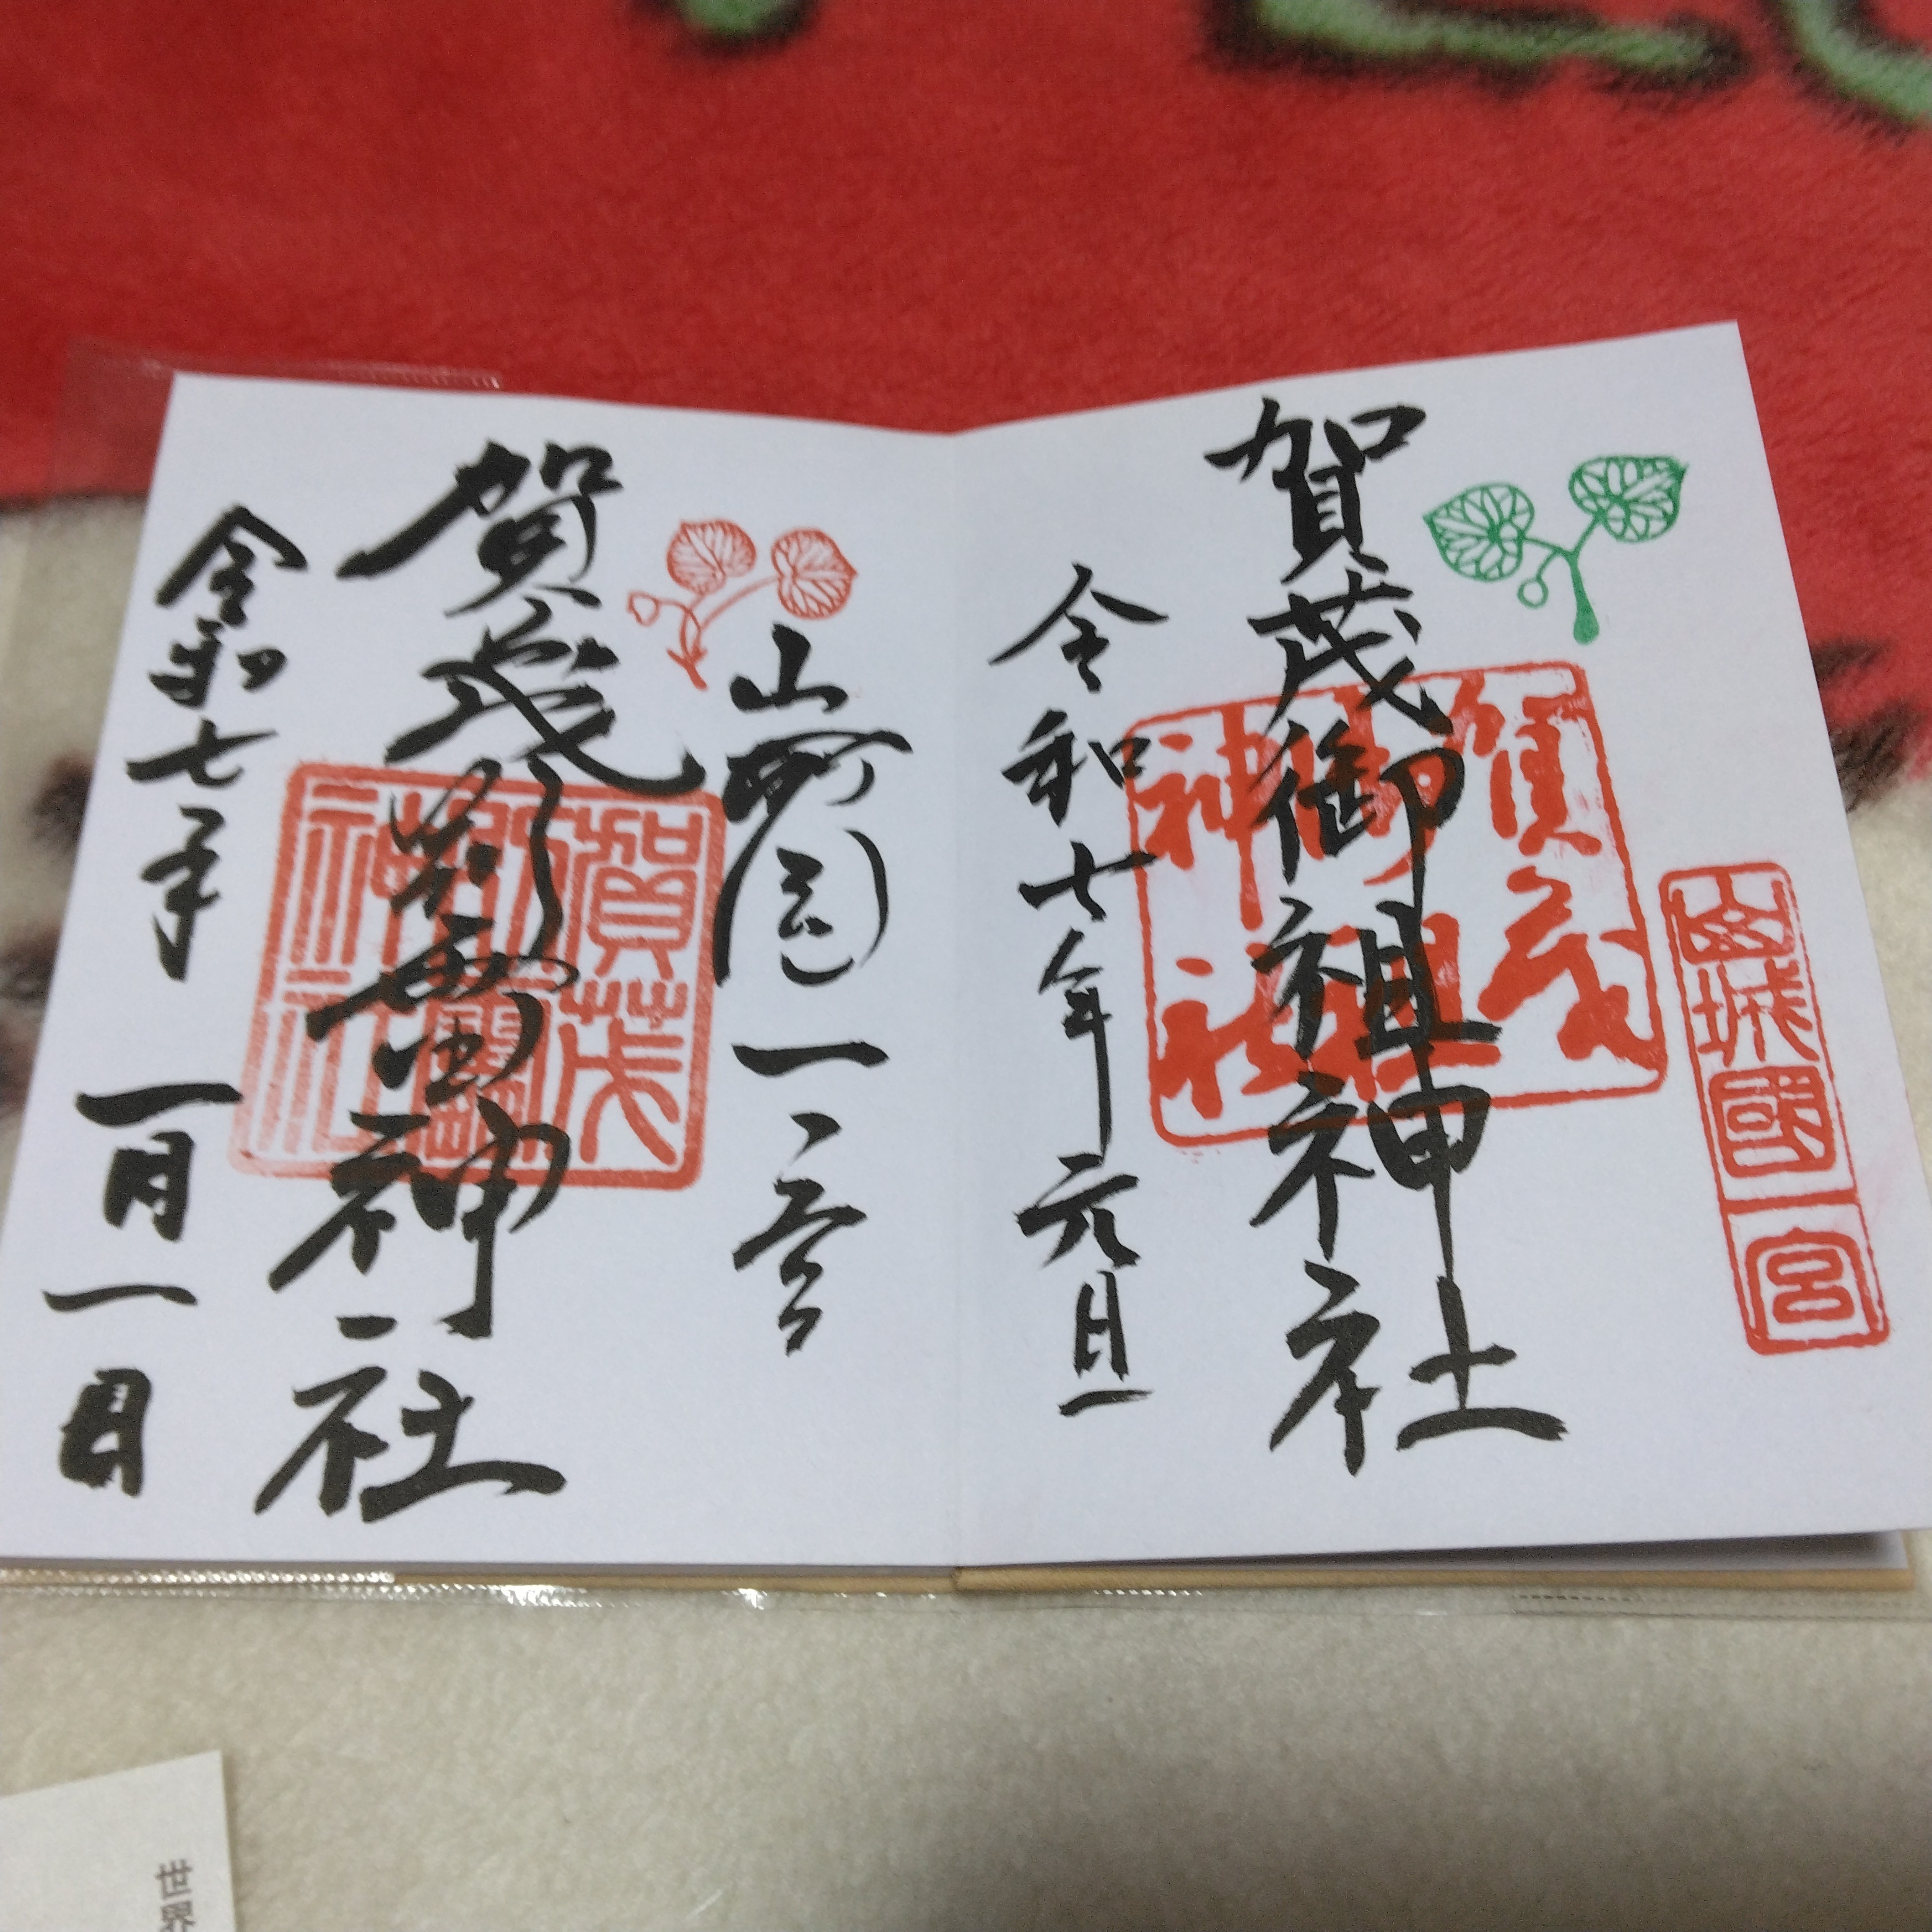 山城國一宮
賀茂御祖神社
賀茂御祖神社
令和七年元旦
山城国一宮
賀茂別雷神社
賀茂別雷神社
令和七年一月一日
世界